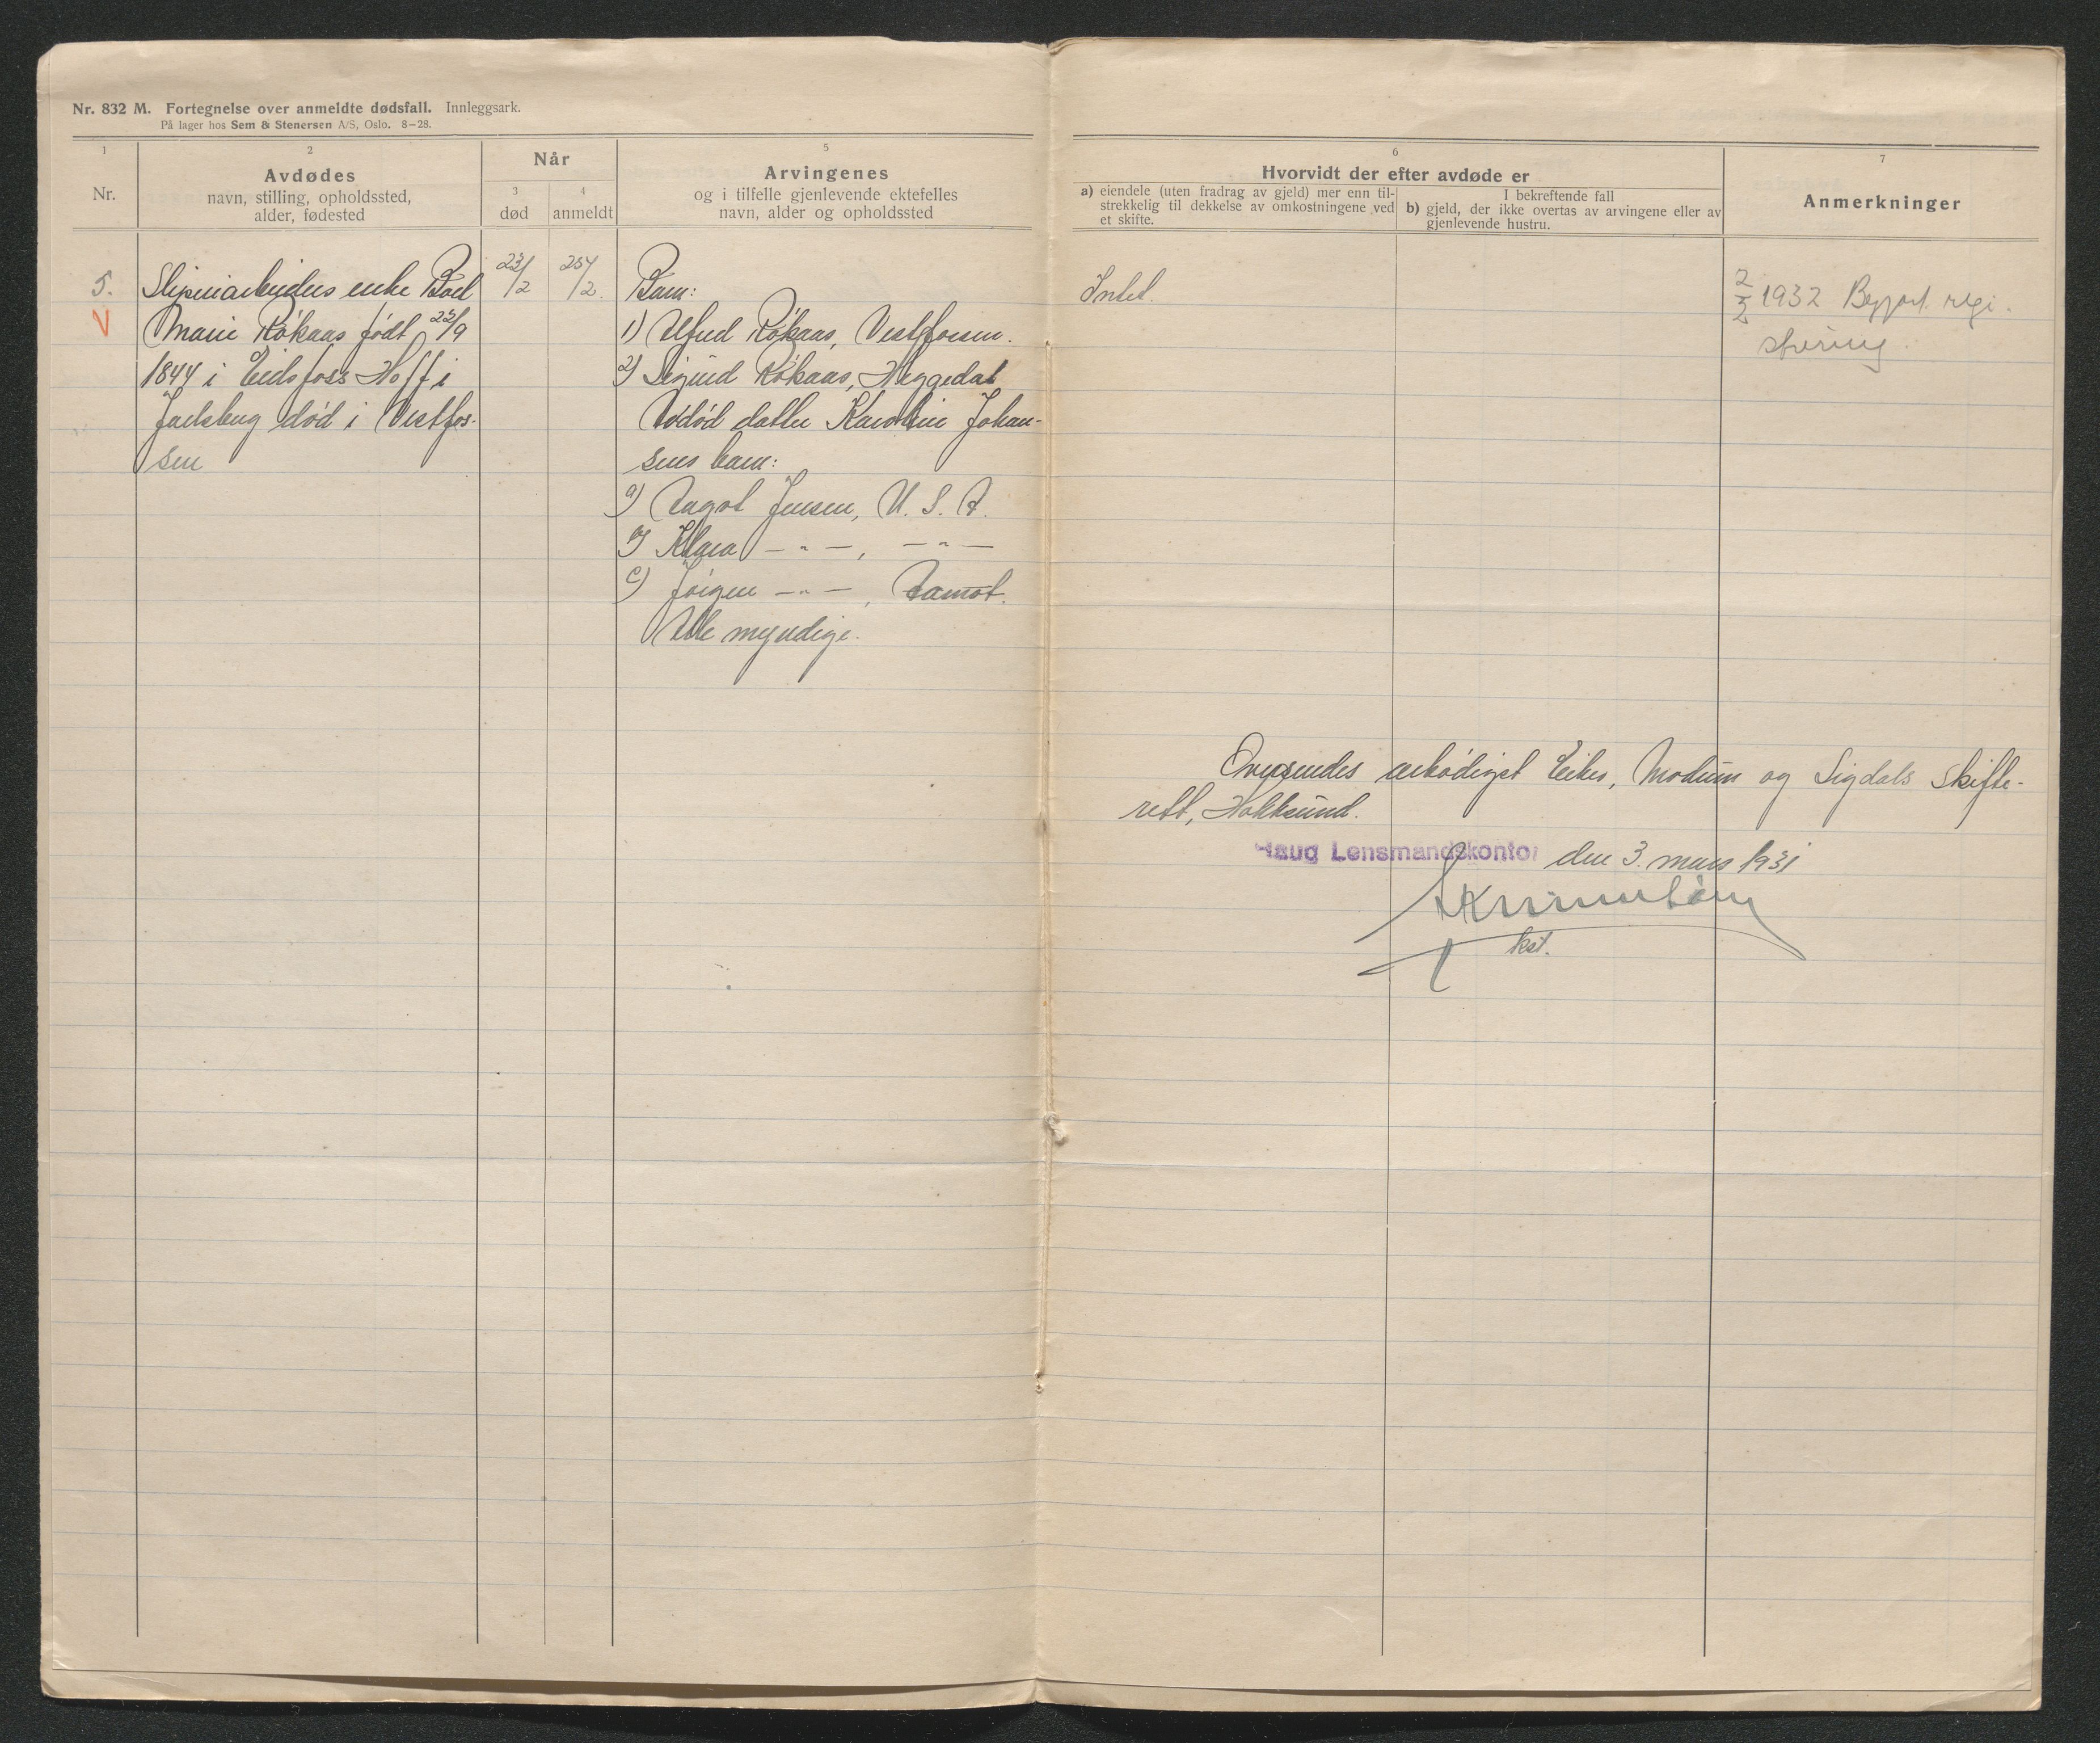 Nr. 832 M. Fortegnelse over anmeldte dødsfall. Innleggsark.
På lager hos Sem & Stenersen A/S, Oslo. 8–28.
1
Nr.
2
Avdødes
navn, stilling, opholdssted,
alder, fødested
Når
3
død
4
anmeldt
5
Arvingenes
og i tilfelle gjenlevende ektefelles
navn, alder og opholdssted
6
Hvorvidt der efter avdøde er
a) eiendele (uten fradrag av gjeld) mer enn til-
strekkelig til dekkelse av omkostningene ved
et skifte.
I bekreftende fall
b) gjeld, der ikke overtas av arvingene eller av
gjenlevende hustru.
7
Anmerkninger
5.
V
Sliperiarbeiders enke Boel
Marie Rökaas født 22/9
1844 i Eidsfoss Hoff i
Jarlsberg død i Vestfos-
sen
23/2
25/2.
Barn:
1) Alfred Rökaas, Vestfossen.
2) Sigurd Rökaas, Heggedal
Avdød datter Karoline Johan-
sens barn:
a) Aagot Jensen, U. S. A.
b) Klara — " — , — " —
c) Jörgen — " — , Aamot.
Alle myndige.
Intet.
2/3 1932 regi-
strering
Oversendes ærbödigst Eiker, Modum og Sigdals skifte-
rett, Hokksund.
Haug Lensmandskontor den 3. mars 1931
kst.